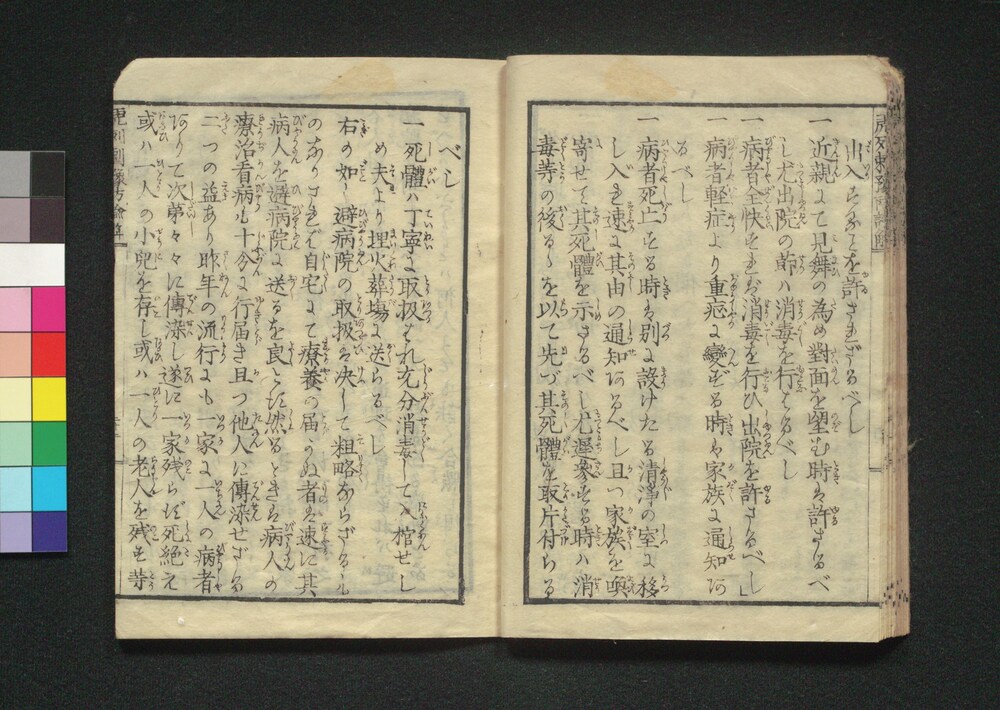 出入することを許されざるべし
一 近親にて見舞の為め對面を望む時は許さるべ
し尤出院の節ハ消毒を行はるべし
一 病者全快すれば消毒を行ひ出院を許さるべし
一 病者軽症より重症に變ずる時は家族に通知ア
るべし
一 病者死亡する時は別に設けたる清浄の室に移
し入れ速に其由の通知アるべし且つ家族を喚
寄せて其死體を示さるべし尤遅参する時ハ消
毒等の後るゝを以て先づ其死體を取片付らる
べし
一 死體ハ丁寧に取扱はれ充分消毒して入棺せし
め夫より埋火葬塲に送らるべし
右の如く避病院の取扱は决して粗略ならざるも
のなりされば自宅にて療養の届かぬ者は速に其
病人を避病院に送るを良とす然るときは病人の
療治看病も十分に行届き且つ他人に傳染せざる
二つの益あり昨年の流行にも一家に一人の病者
アりて次第々々に傳染し遂に一家残らず死絶え
或ハ一人の小兒を存し或ハ一人の老人を残す等